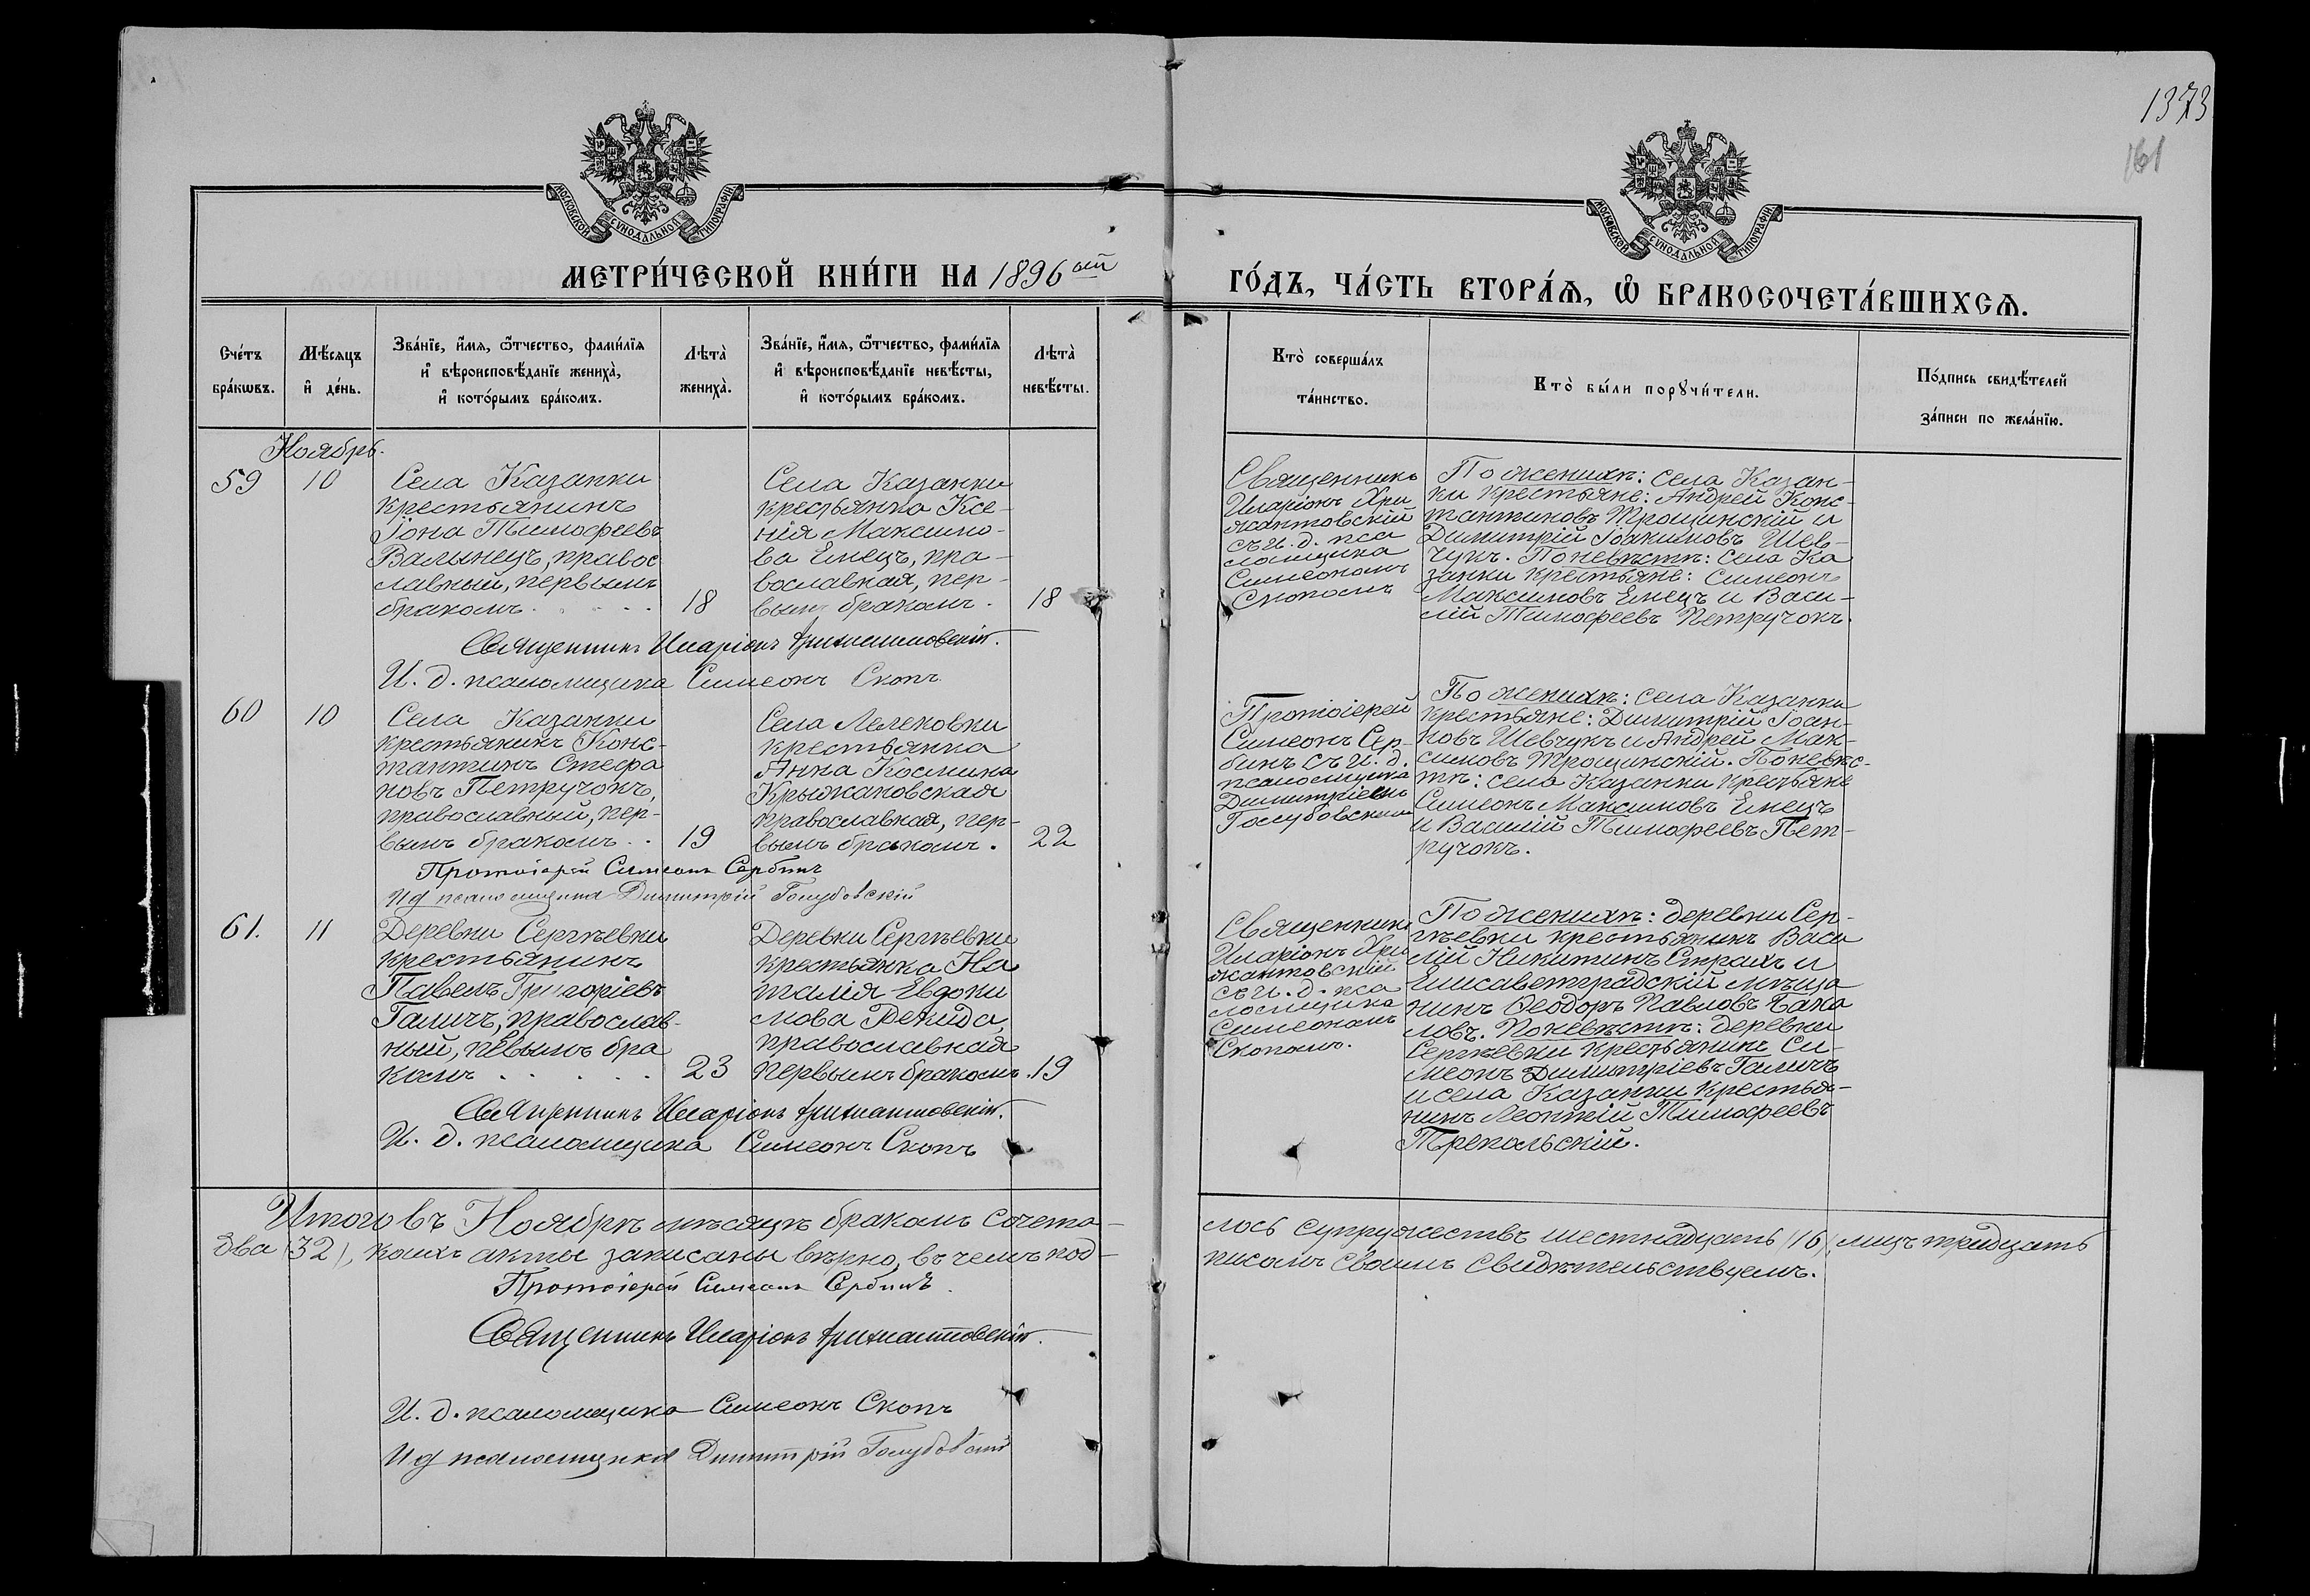 1373
161
МОСКОВСКОЙ СУНОДАЛЬНОЙ ТИПОГРАФІИ
МОСКОВСКОЙ СУНОДАЛЬНОЙ ТИПОГРАФІИ
МЕТРИ́ЧЕСКОЙ КНИ́ГИ НА 1896 ый
ГО́ДЪ, ЧА́СТЬ ВТОРА́Ѧ, Ѽ БРАКОСОЧЕТА́ВШИХСѦ.
Сче́тъ
бра́кѡвъ.
Мѣ́сяцъ
и҆ де́нь.
Зва́нїе, и҆́мя, ѻ҆́тчество, фами́лїя
и҆ вѣроисповѣ́данїе жениха̀,
и҆ кото́рымъ бра́комъ.
Лѣта̀
жениха̀.
Зва́нїе, и҆́мя, ѻ҆́тчество, фами́лїя
и҆ вѣроисповѣ́данїе невѣ́сты,
и҆ кото́рымъ бра́комъ.
Лѣта̀
невѣ́сты.
Кто̀ соверша́лъ
та́инство.
Кто̀ бы́ли порꙋчи́тели.
По́дпись свидѣ́телей
за́писи по жела́нїю.
Ноябрь.
59
10
Села Казанки
крестьянинъ
Іона Тимофеевъ
Валынецъ, правос
лавный, первымъ
бракомъ . . . . .
18
Села Казанки
крестьянка Ксе-
нія Максимо-
ва Емецъ, пра-
вославная, пер-
вымъ бракомъ.
18
Священникъ
Иларіонъ Хри
жантовскій
съ И. д. пса
ломщика
Симеономъ
Скопомъ
По женихѣ: села Казан-
ки крестьяне: Андрей Конс-
тантиновъ Трощинскій и
Димитрій Іоакимовъ Шев-
чукъ. По невѣстѣ: села Ка
занки крестьяне: Симеонъ
Максимовъ Емецъ и Васи-
лій Тимофеевъ Петручокъ.
Священникъ Иларіонъ Хрижантовскій.
И. д. псаломщика Симеонъ Скопъ
60
10
Села Казанки
крестьянинъ Конс-
тантинъ Стефа
новъ Петручокъ,
православный, пер-
вымъ бракомъ . .
19
Села Лелековки
крестьянка
Анна Космина
Крыжановская
православная, пер-
вымъ бракомъ.
22
Протоіерей
Симеонъ Сер-
бинъ съ И. д.
псаломщика
Димитріемъ
Голубовскимъ
По женихѣ: села Казанки
крестьяне: Димитрій Іоан-
новъ Шевчукъ и Андрей Мак-
симовъ Трощинскій. По невѣс-
тѣ: села Казанки крестьяне
Симеонъ Максимовъ Емецъ
и Василій Тимофеевъ Пет-
ручокъ.
Протоіерей Симеонъ Сербинъ
И д псаломщика Димитрій Голубовскій
61.
11
Деревни Сергѣевки
крестьянинъ
Павелъ Григоріевъ
Галичъ, православ-
ный, певымъ бра
комъ . . . . . .
23
Деревни Сергѣевки
крестьянка На
талія Евдоки
мова
православная
первымъ бракомъ.
19
Священникъ
Иларіонъ Хри
жантовскій
съ И. д. пса
ломщика
Симеономъ
Скопомъ.
По женихѣ: деревни Сер-
гѣевки крестьянинъ Васи
лій Никитинъ Страхъ и
Елисаветградскій мѣща
нинъ Ѳеодоръ Павловъ
ловъ. По невѣстѣ: деревни
Сергѣевки крестьянинъ Си-
меонъ Димитріевъ Галичъ
и села Казанки крестья-
нинъ Леонтій Тимофеевъ
Трепольскій.
Священникъ Иларіонъ Хрижантовскій.
И. д. псаломщика Симеонъ Скопъ
Итого въ Ноябрѣ мѣсяцѣ бракомъ сочета-
лось супружествъ шестнадцать (16), лицъ тридцать
два (32), коихъ акты записаны вѣрно, въ чемъ под-
писомъ своимъ свидѣтельствуемъ.
Протоіерей Симеонъ Сербинъ.
Священникъ Иларіонъ Хрижантовскій.
И. д. псаломщика Симеонъ Скопъ
И д псаломщика Димитрій Голубовскій